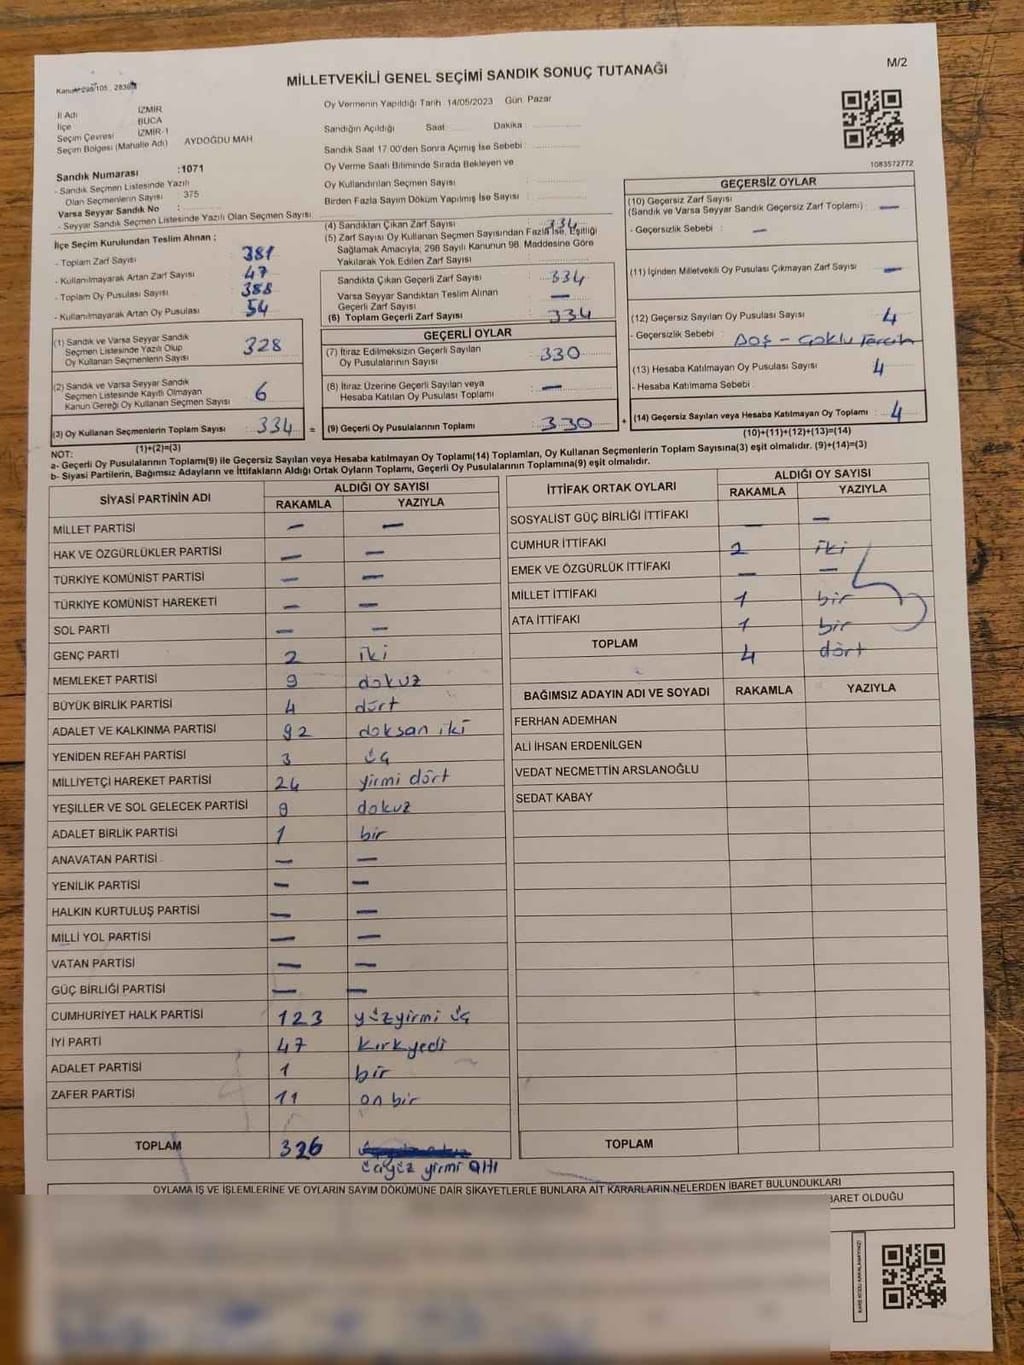 M/2
MİLLETVEKİLİ GENEL SEÇİMİ SANDIK SONUÇ TUTANAĞI
İl Adı İZMİR
İlçe BUCA
Seçim Çevresi İZMİR-1
Seçim Bölgesi (Mahalle Adı) AYDOĞDU MAH
Sandık Numarası :1071
- Sandık Seçmen Listesinde Yazılı
Olan Seçmenlerin Sayısı 375
Varsa Seyyar Sandık No :
- Seyyar Sandık Seçmen Listesinde Yazılı Olan Seçmen Sayısı
Oy Vermenin Yapıldığı Tarih 14/05/2023 Gün Pazar
Sandığın Açıldığı Saat Dakika
Sandık Saat 17.00'den Sonra Açımış İse Sebebi
Oy Verme Saati Bitiminde Sırada Bekleyen ve
Oy Kullandırılan Seçmen Sayısı
Birden Fazla Sayım Döküm Yapılmış İse Sayısı
1083572772
İlçe Seçim Kurulundan Teslim Alınan ;
- Toplam Zarf Sayısı 381
- Kullanılmayarak Artan Zarf Sayısı 47
- Toplam Oy Pusulası Sayısı 388
- Kullanılmayarak Artan Oy Pusulası 54
(1) Sandık ve Varsa Seyyar Sandık
Seçmen Listesinde Yazılı Olup
Oy Kullanan Seçmenlerin Sayısı 328
(2) Sandık ve Varsa Seyyar Sandık
Seçmen Listesinde Kayıtlı Olmayan
Kanun Gereği Oy Kullanan Seçmen Sayısı 6
(3) Oy Kullanan Seçmenlerin Toplam Sayısı 334 =
(1)+(2)=(3)
(4) Sandıktan Çıkan Zarf Sayısı 334
(5) Zarf Sayısı Oy Kullanan Seçmen Sayısından Fazla İse, Eşitliği
Sağlamak Amacıyla, 298 Sayılı Kanunun 98. Maddesine Göre
Yakılarak Yok Edilen Zarf Sayısı
Sandıkta Çıkan Geçerli Zarf Sayısı 334
Varsa Seyyar Sandıktan Teslim Alınan
Geçerli Zarf Sayısı —
(6) Toplam Geçerli Zarf Sayısı 334
GEÇERLİ OYLAR
(7) İtiraz Edilmeksizin Geçerli Sayılan
Oy Pusulalarının Sayısı 330
(8) İtiraz Üzerine Geçerli Sayılan veya
Hesaba Katılan Oy Pusulası Toplamı —
(9) Geçerli Oy Pusulalarının Toplamı 330 +
GEÇERSİZ OYLAR
(10) Geçersiz Zarf Sayısı
(Sandık ve Varsa Seyyar Sandık Geçersiz Zarf Toplamı) —
- Geçersizlik Sebebi : —
(11) İçinden Milletvekili Oy Pusulası Çıkmayan Zarf Sayısı —
(12) Geçersiz Sayılan Oy Pusulası Sayısı 4
- Geçersizlik Sebebi : Boş - Çoklu Tercih
(13) Hesaba Katılmayan Oy Pusulası Sayısı 4
- Hesaba Katılmama Sebebi
(14) Geçersiz Sayılan veya Hesaba Katılmayan Oy Toplamı 4
(10)+(11)+(12)+(13)=(14)
NOT:
a- Geçerli Oy Pusulalarının Toplamı(9) ile Geçersiz Sayılan veya Hesaba katılmayan Oy Toplamı(14) Toplamları, Oy Kullanan Seçmenlerin Toplam Sayısına(3) eşit olmalıdır. (9)+(14)=(3)
b- Siyasi Partilerin, Bağımsız Adayların ve İttifakların Aldığı Ortak Oyların Toplamı, Geçerli Oy Pusulalarının Toplamına(9) eşit olmalıdır.
SİYASİ PARTİNİN ADI ALDIĞI OY SAYISI
RAKAMLA YAZIYLA
MİLLET PARTİSİ — —
HAK VE ÖZGÜRLÜKLER PARTİSİ — —
TÜRKİYE KOMÜNİST PARTİSİ — —
TÜRKİYE KOMÜNİST HAREKETİ — —
SOL PARTİ — —
GENÇ PARTİ 2 iki
MEMLEKET PARTİSİ 9 dokuz
BÜYÜK BİRLİK PARTİSİ 4 dört
ADALET VE KALKINMA PARTİSİ 92 doksan iki
YENİDEN REFAH PARTİSİ 3 üç
MİLLİYETÇİ HAREKET PARTİSİ 24 yirmi dört
YEŞİLLER VE SOL GELECEK PARTİSİ 9 dokuz
ADALET BİRLİK PARTİSİ 1 bir
ANAVATAN PARTİSİ — —
YENİLİK PARTİSİ — —
HALKIN KURTULUŞ PARTİSİ — —
MİLLİ YOL PARTİSİ — —
VATAN PARTİSİ — —
GÜÇ BİRLİĞİ PARTİSİ — —
CUMHURİYET HALK PARTİSİ 123 yüzyirmi üç
İYİ PARTİ 47 kırkyedi
ADALET PARTİSİ 1 bir
ZAFER PARTİSİ 11 on bir
TOPLAM 326
üçyüz yirmi altı
İTTİFAK ORTAK OYLARI ALDIĞI OY SAYISI
RAKAMLA YAZIYLA
SOSYALİST GÜÇ BİRLİĞİ İTTİFAKI — —
CUMHUR İTTİFAKI 2 iki
EMEK VE ÖZGÜRLÜK İTTİFAKI — —
MİLLET İTTİFAKI 1 bir
ATA İTTİFAKI 1 bir
TOPLAM 4 dört
BAĞIMSIZ ADAYIN ADI VE SOYADI RAKAMLA YAZIYLA
FERHAN ADEMHAN
ALİ İHSAN ERDENİLGEN
VEDAT NECMETTİN ARSLANOĞLU
SEDAT KABAY
TOPLAM
OYLAMA İŞ VE İŞLEMLERİNE VE OYLARIN SAYIM DÖKÜMÜNE DAİR ŞİKAYETLERLE BUNLARA AİT KARARLARIN NELERDEN İBARET BULUNDUKLARI
BARET OLDUĞU